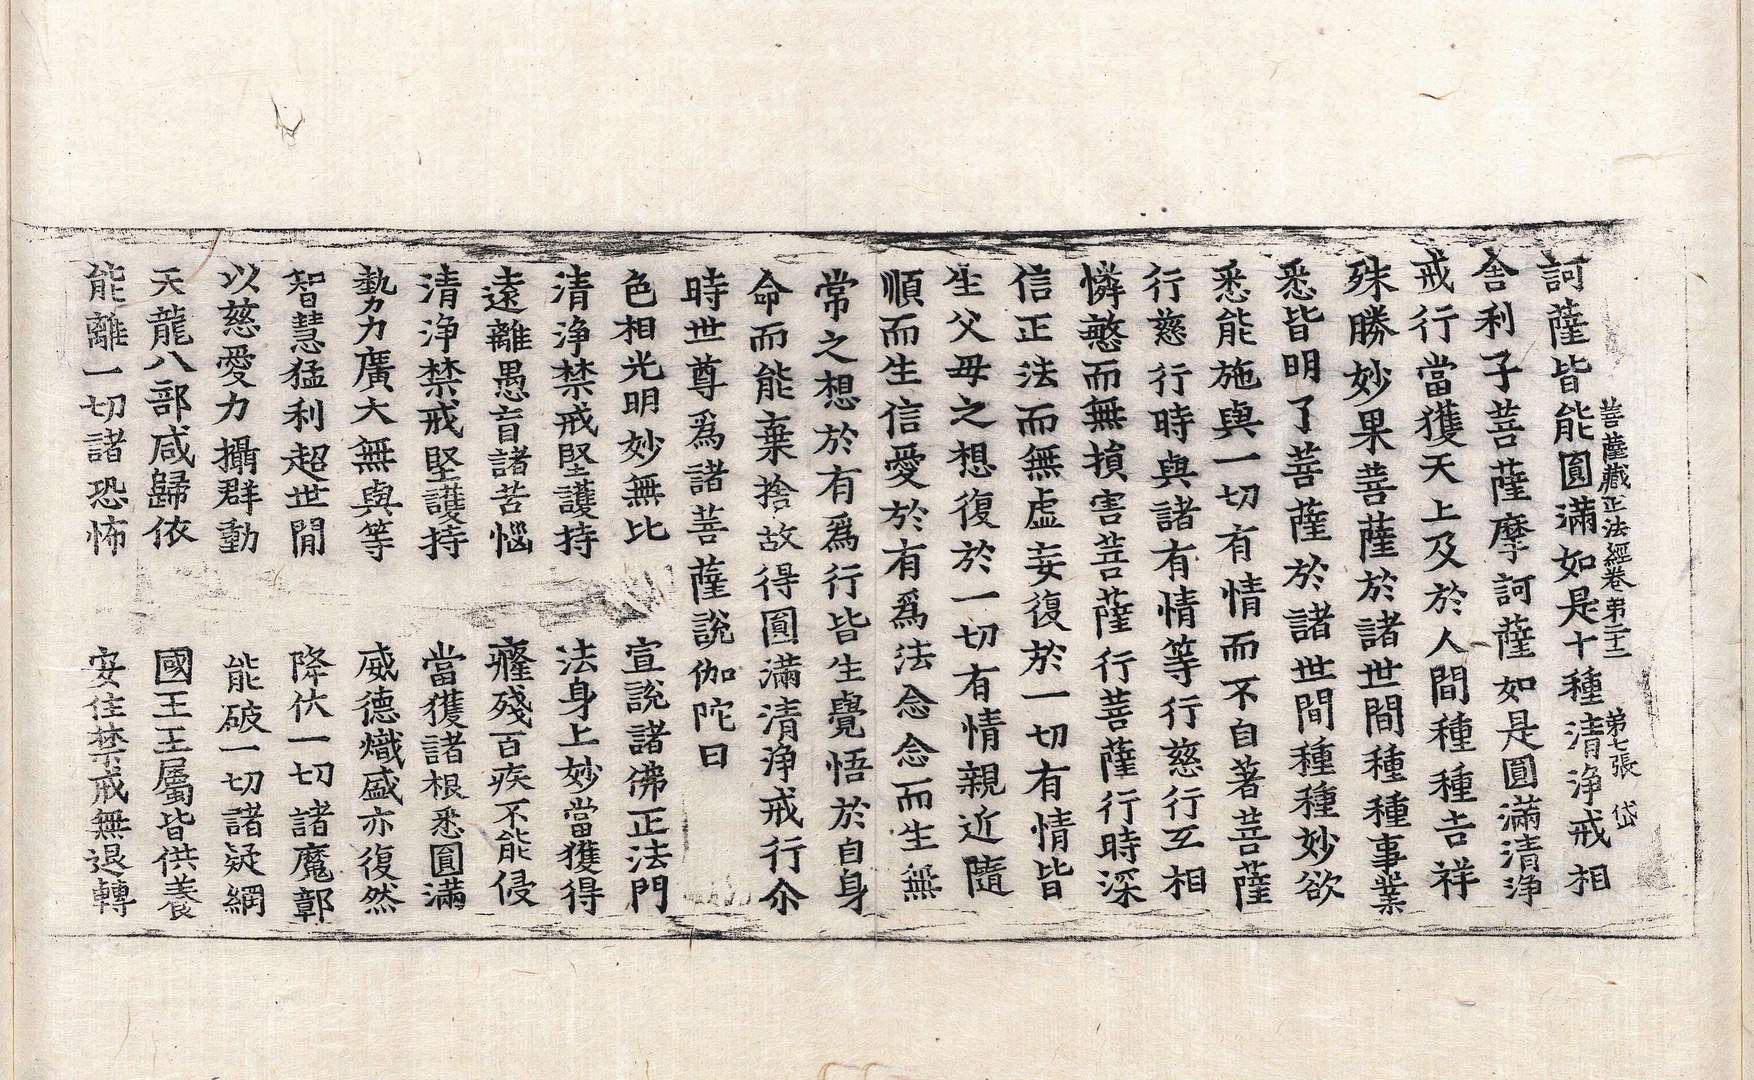 菩薩藏正法經卷苐二十二 苐七張 岱
訶薩皆能圓滿如是十種清淨戒相
舍利子菩薩摩訶薩如是圓滿清淨
戒行當獲天上及於人間種種吉祥
殊勝妙果菩薩於諸世間種種事業
悉皆明了菩薩於諸世間種種妙欲
悉能施與一切有情而不自著菩薩
行慈行時與諸有情等行慈行互相
憐愍而無損害菩薩行菩薩行時深
信正法而無虛妄復於一切有情皆
生父母之想復於一切有情親近隨
順而生信愛於有爲法念念而生無
常之想於有爲行皆生覺悟於自身
命而能棄捨故得圓滿清淨戒行尒
時世尊爲諸菩薩說伽陀曰
色相光明妙無比 宣說諸佛正法門
清淨禁戒堅護持 法身上妙當獲得
遠離愚盲諸苦惱 癃殘百疾不能侵
清淨禁戒堅護持 當獲諸根悉圓滿
勢力廣大無與等 威德熾盛亦復然
智慧猛利超世間 降伏一切諸魔鄣
以慈愛力攝群動 能破一切諸疑網
天龍八部咸歸依 國王王屬皆供養
能離一切諸恐怖 安住禁戒無退轉